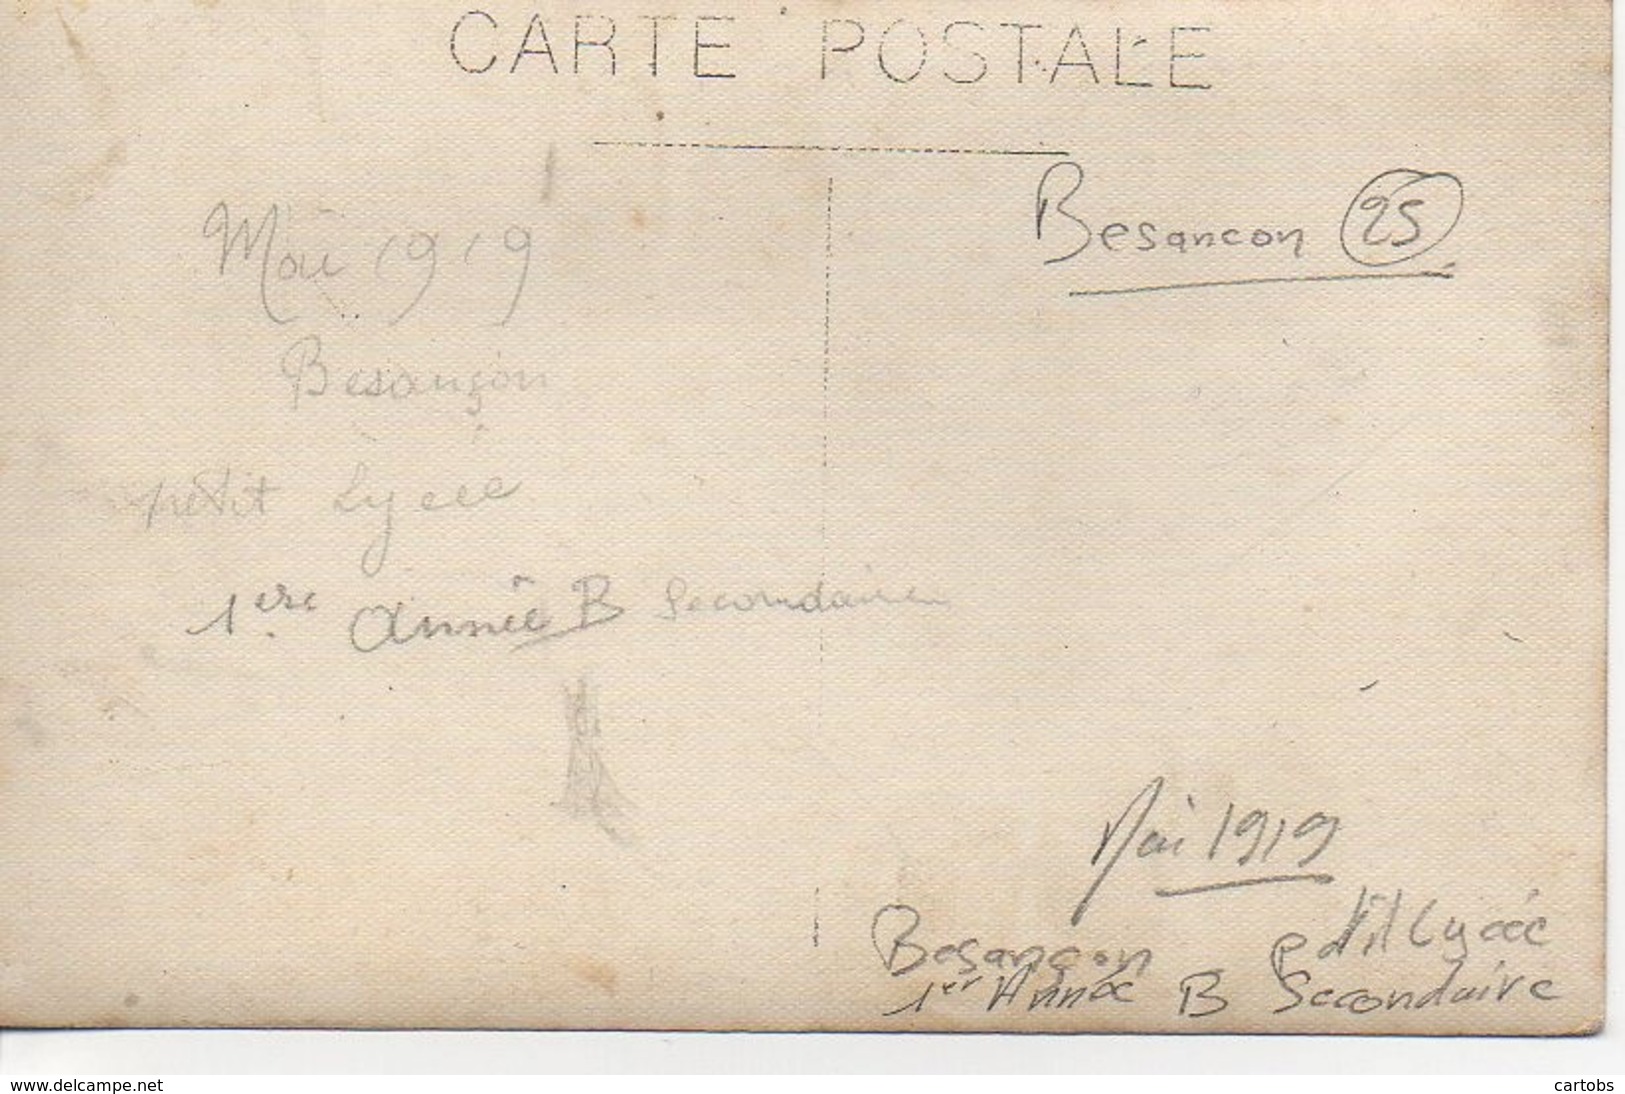 CARTE POSTALE
Besancon 25
Mai 1919
Besançon
petit Lycée
1ère année B Secondaire
Mai 1919
Besançon petit Lycée
1er Année B Secondaire
www.delcampe.net
cartobs